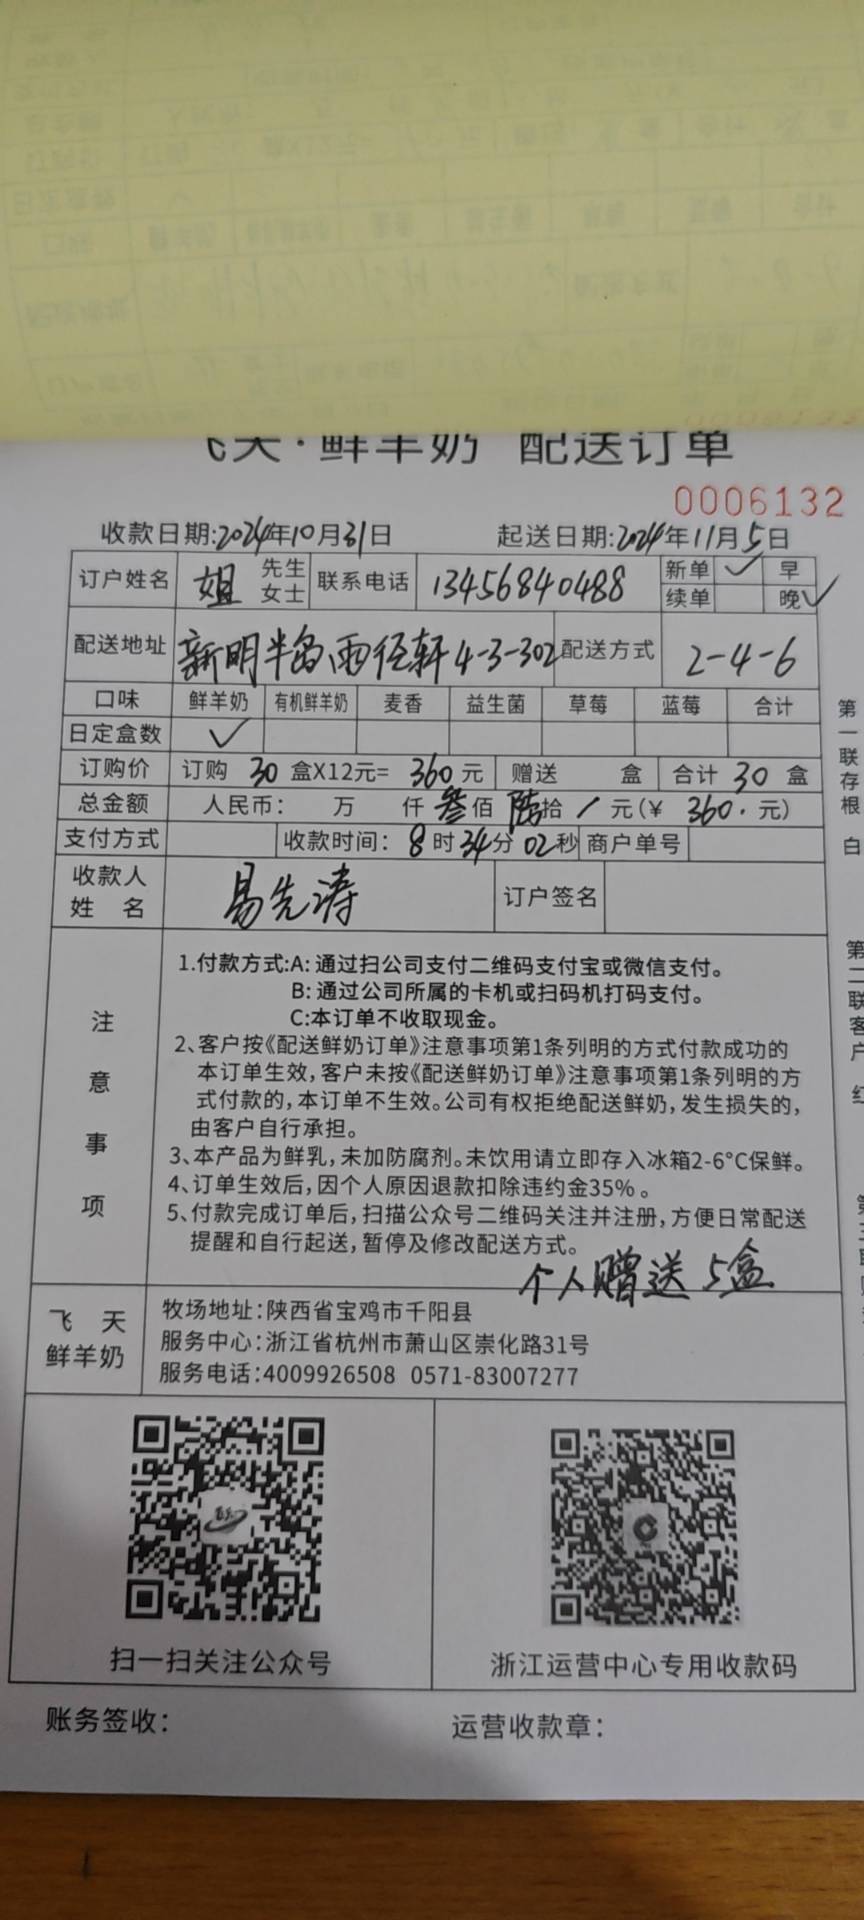 飞天·鲜羊奶 配送订单
0006132
收款日期:2024年10月31日 起送日期:2024年11月5日
订户姓名 姐 先生 女士 联系电话 13456840488 新单 ✓ 早
续单 晚 ✓
配送地址 新明半岛雨径轩4-3-302 配送方式 2-4-6
口味 鲜羊奶 有机鲜羊奶 麦香 益生菌 草莓 蓝莓 合计
日定盒数 ✓
订购价 订购 30 盒X12元= 360 元 赠送 盒 合计 30 盒
总金额 人民币: 万 仟 叁佰 陆拾 / 元(¥ 360. 元)
支付方式 收款时间: 8时34分02秒 商户单号
收款人姓名 易先涛 订户签名
注意事项
1.付款方式:A:通过扫公司支付二维码支付宝或微信支付。
B:通过公司所属的卡机或扫码机打码支付。
C:本订单不收取现金。
2、客户按《配送鲜奶订单》注意事项第1条列明的方式付款成功的
本订单生效,客户未按《配送鲜奶订单》注意事项第1条列明的方
式付款的,本订单不生效。公司有权拒绝配送鲜奶,发生损失的,
由客户自行承担。
3、本产品为鲜乳,未加防腐剂。未饮用请立即存入冰箱2-6°C保鲜。
4、订单生效后,因个人原因退款扣除违约金35%。
5、付款完成订单后,扫描公众号二维码关注并注册,方便日常配送
提醒和自行起送,暂停及修改配送方式。
个人赠送5盒
飞天鲜羊奶
牧场地址:陕西省宝鸡市千阳县
服务中心:浙江省杭州市萧山区崇化路31号
服务电话:4009926508 0571-83007277
扫一扫关注公众号 浙江运营中心专用收款码
账务签收: 运营收款章:
第一联存根 白
第二联客户 红